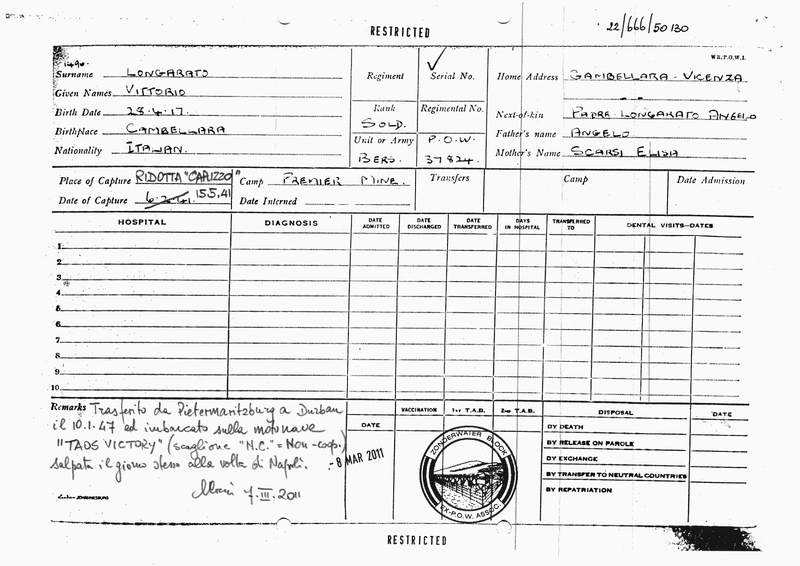 RESTRICTED
22/666/50130
WR/P.O.W.1.
Surname LONGARATO
Given Names VITTORIO
Birth Date 28.4.17.
Birthplace CAMBELLARA
Nationality ITALIAN.
Regiment
Serial No.
Rank
SOLD.
Regimental No.
Unit or Army
BERS.
P.O.W.
37824.
Home Address GAMBELLARA - VICENZA
Next-of-kin PADRE LONGARATO ANGELO
Father's name ANGELO
Mother's Name SCARSI ELISA
Place of Capture RIDOTTA "CAPUZZO"
Date of Capture 15.5.41
Camp PREMIER MINE.
Date Interned
Transfers
Camp
Date Admission
HOSPITAL DIAGNOSIS DATE ADMITTED DATE DISCHARGED DATE TRANSFERRED DAYS IN HOSPITAL TRANSFERRED TO DENTAL VISITS—DATES
1.
2.
3.
4.
5.
6.
7.
8.
9.
10.
Remarks Trasferito da Pietermaritzburg a Durban
il 10.1.47 ed imbarcato sulla motonave
"TAOS VICTORY" (scaglione "N.C." = Non-coop.)
salpata il giorno stesso alla volta di Napoli.
7.III.2011
JOHANNESBURG
VACCINATION 1ST T.A.B. 2ND T.A.B.
DATE
- 8 MAR 2011
ZONDERWATER BLOCK
EX-P.O.W. ASSOC.
DISPOSAL DATE
BY DEATH
BY RELEASE ON PAROLE
BY EXCHANGE
BY TRANSFER TO NEUTRAL COUNTRIES
BY REPATRIATION
RESTRICTED